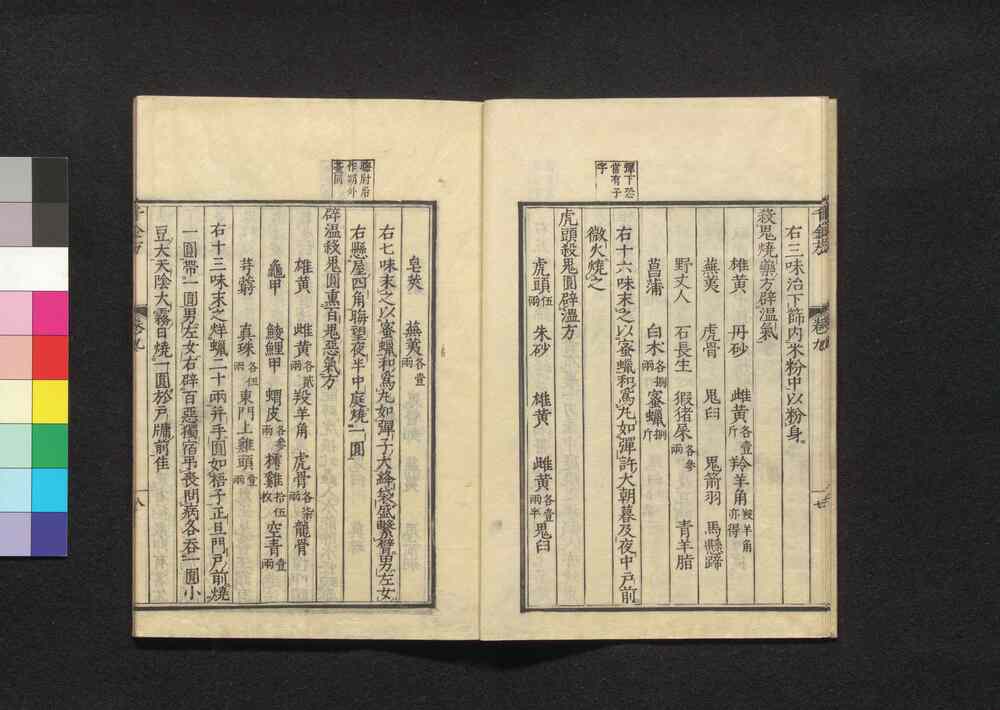 彈下恐
當有子
字
右三味治下篩内米粉中以粉身
殺鬼燒藥方辟溫氣
雄黃 丹砂 雌黃各壹斤 羚羊角羖羊角亦得
蕪荑 虎骨 鬼臼 鬼箭羽 馬懸蹄
野丈人 石長生 猳猪屎各參兩 青羊脂
菖蒲 白朮各捌兩 蜜蠟捌斤
右十六味末之以蜜蠟和爲丸如彈許大朝暮及夜中戶前
微火燒之
虎頭殺鬼圓辟溫方
虎頭伍兩 朱砂 雄黃 雌黃各壹兩半 鬼臼
千金方 卷九 十七
作朔外
臺同
皂莢 蕪荑各壹兩
右七味末之以蜜蠟和爲丸如彈子大絳袋盛繫臂男左女
右懸屋四角晦望夜半中庭燒一圓
辟溫殺鬼圓熏百鬼惡氣方
雄黃 雌黃各貳兩 羖羊角 虎骨各柒兩 龍骨
龜甲 鯪鯉甲 蝟皮各參兩 樗雞拾伍枚 空青壹兩
芎藭 真珠各伍兩 東門上雞頭壹兩
右十三味末之烊蠟二十兩并手圓如梧子正旦門戶前燒
一圓帶一圓男左女右辟百惡獨宿弔喪問病各吞一圓小
豆大天陰大霧日燒一圓於戶牖前佳
千金方 卷九 十八